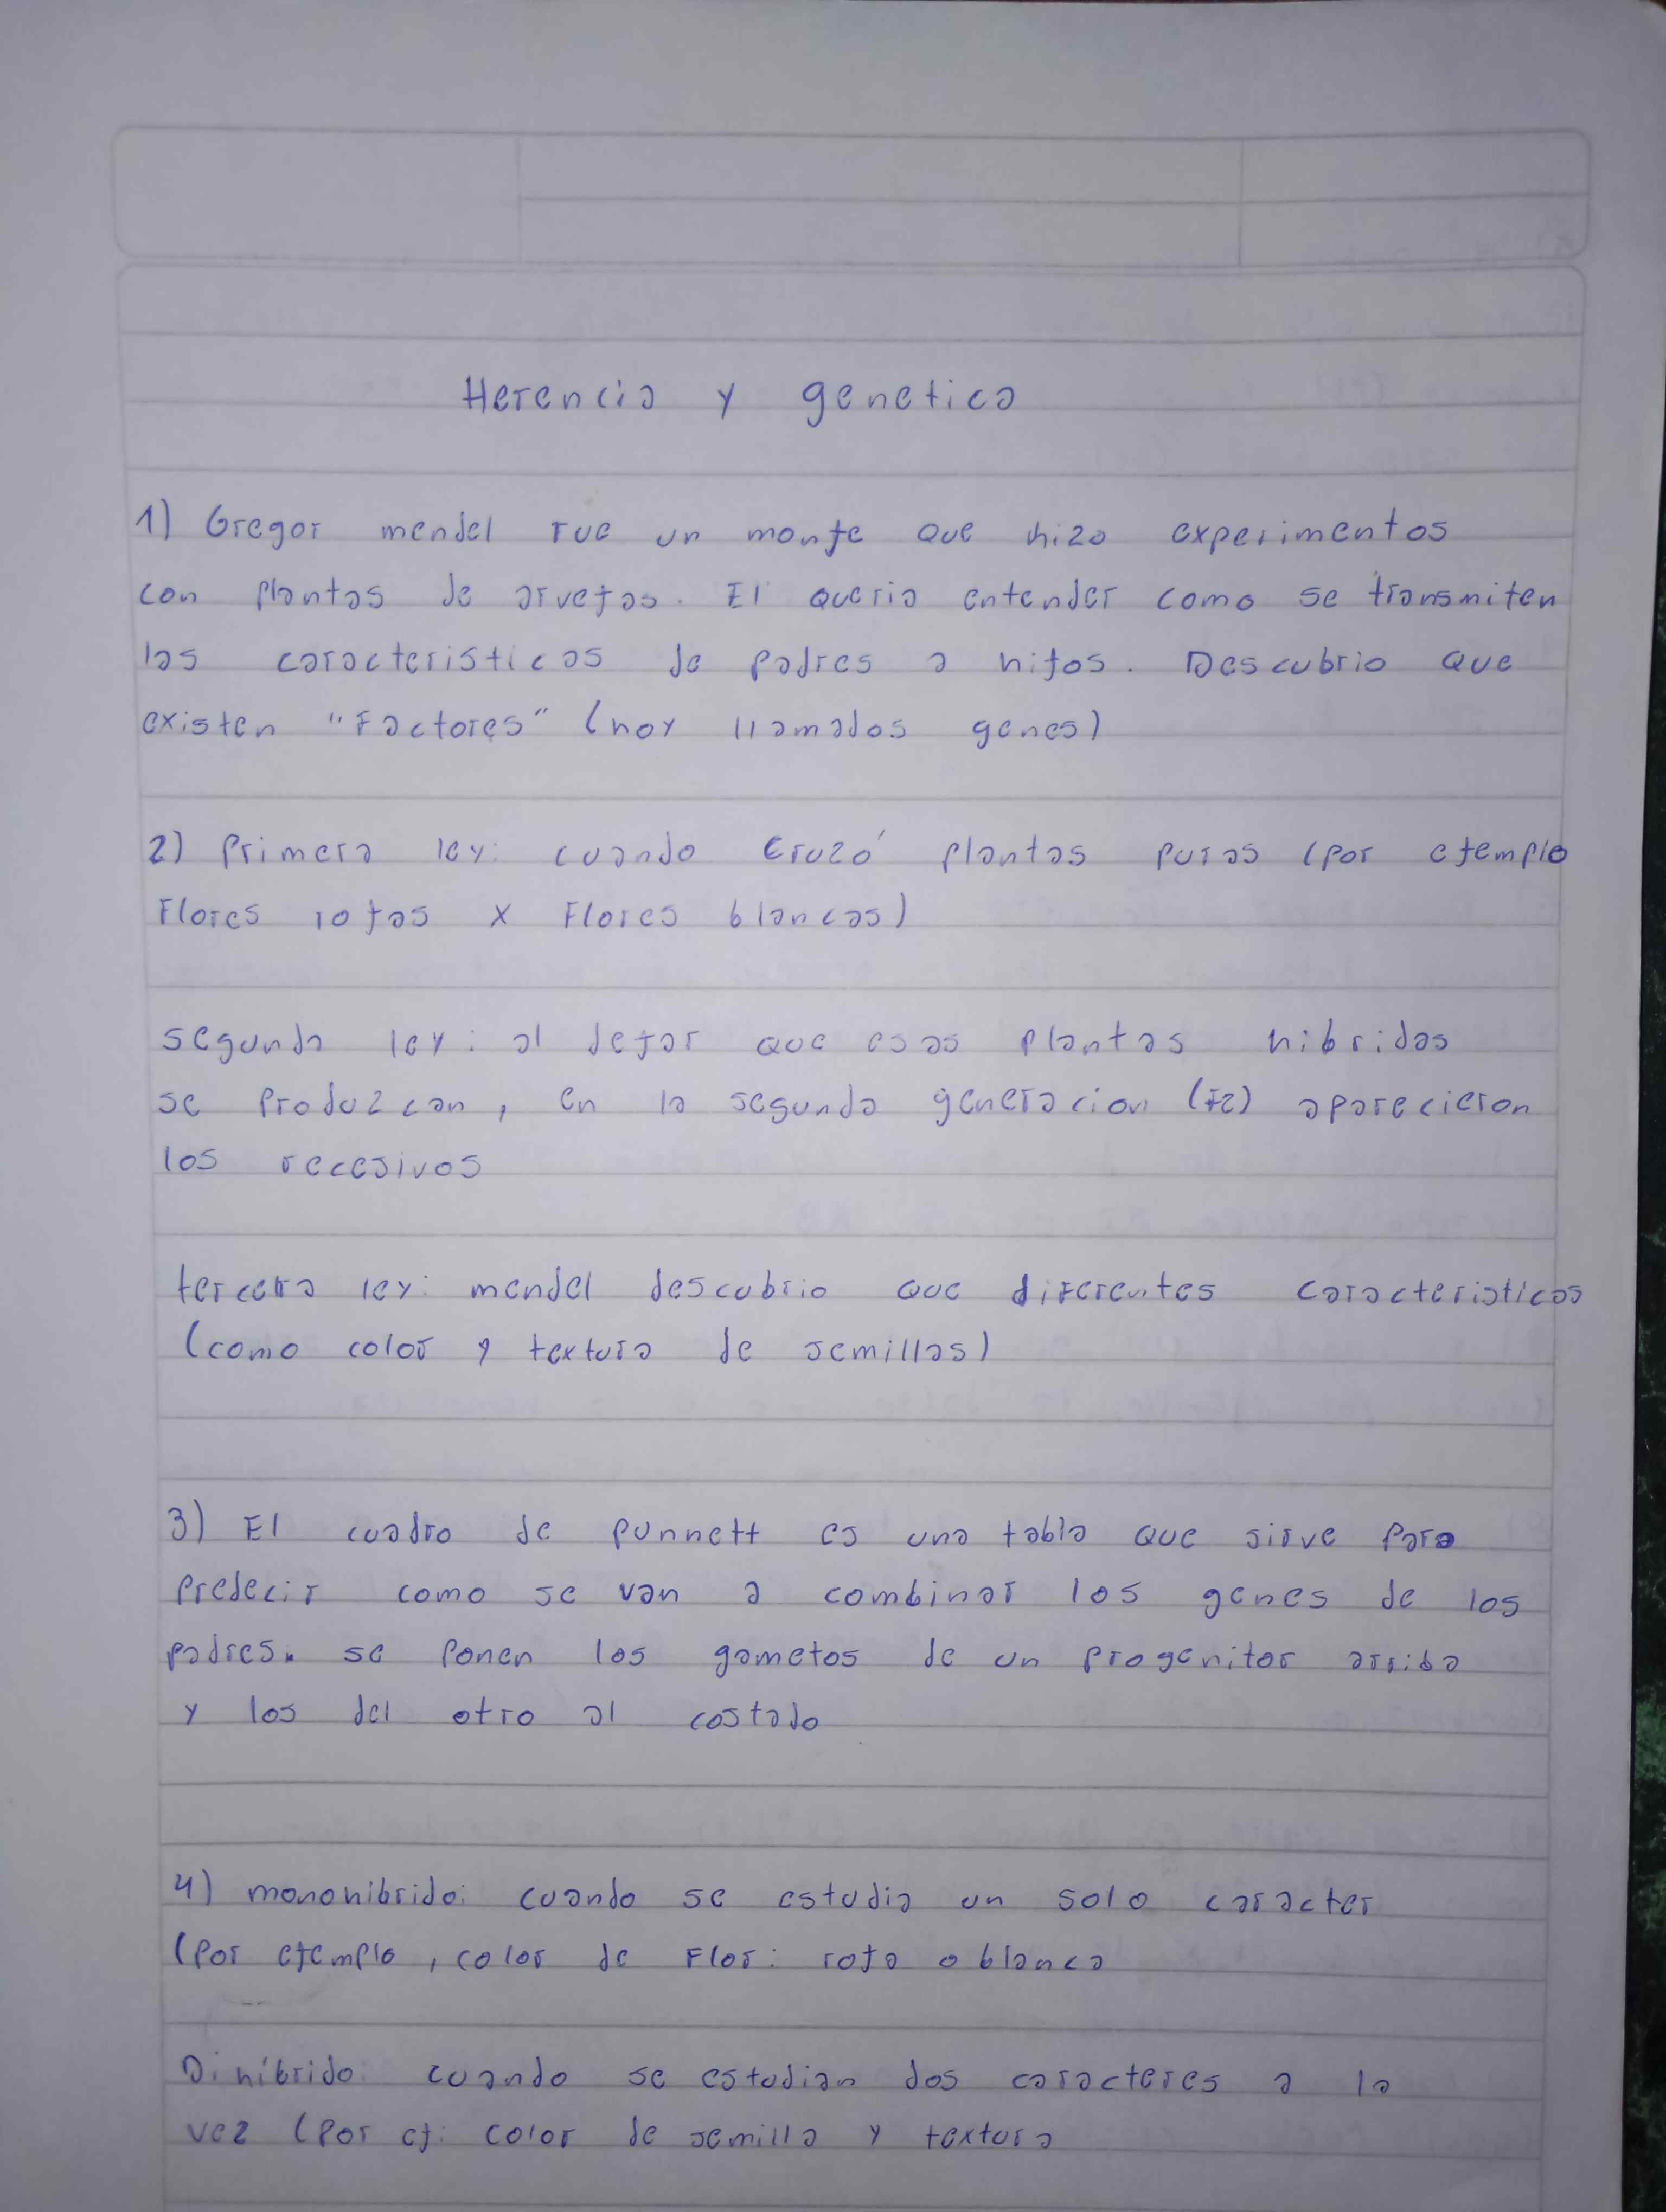 Herencia y genetica
1) Gregor mendel fue un monje que hizo experimentos
con plantas de arvejas. El queria entender como se transmiten
las caracteristicas de padres a hijos. Descubrio que
existen "Factores" (hoy llamados genes)
2) Primera ley: cuando cruzó plantas puras (por ejemplo
Flores rojas x Flores blancas)
segunda ley: al dejar que esas plantas hibridas
se produzcan, en la segunda generacion (F2) aparecieron
los recesivos
tercera ley: mendel descubrio que diferentes caracteristicas
(como color y textura de semillas)
3) El cuadro de punnett es una tabla que sirve para
predecir como se van a combinar los genes de los
padres. se ponen los gametos de un progenitor arriba
y los del otro al costado
4) monohibrido: cuando se estudia un solo caracter
(Por ejemplo, color de Flor: roja o blanca
Dihíbrido: cuando se estudian dos caracteres a la
vez (Por ej: color de semilla y textura